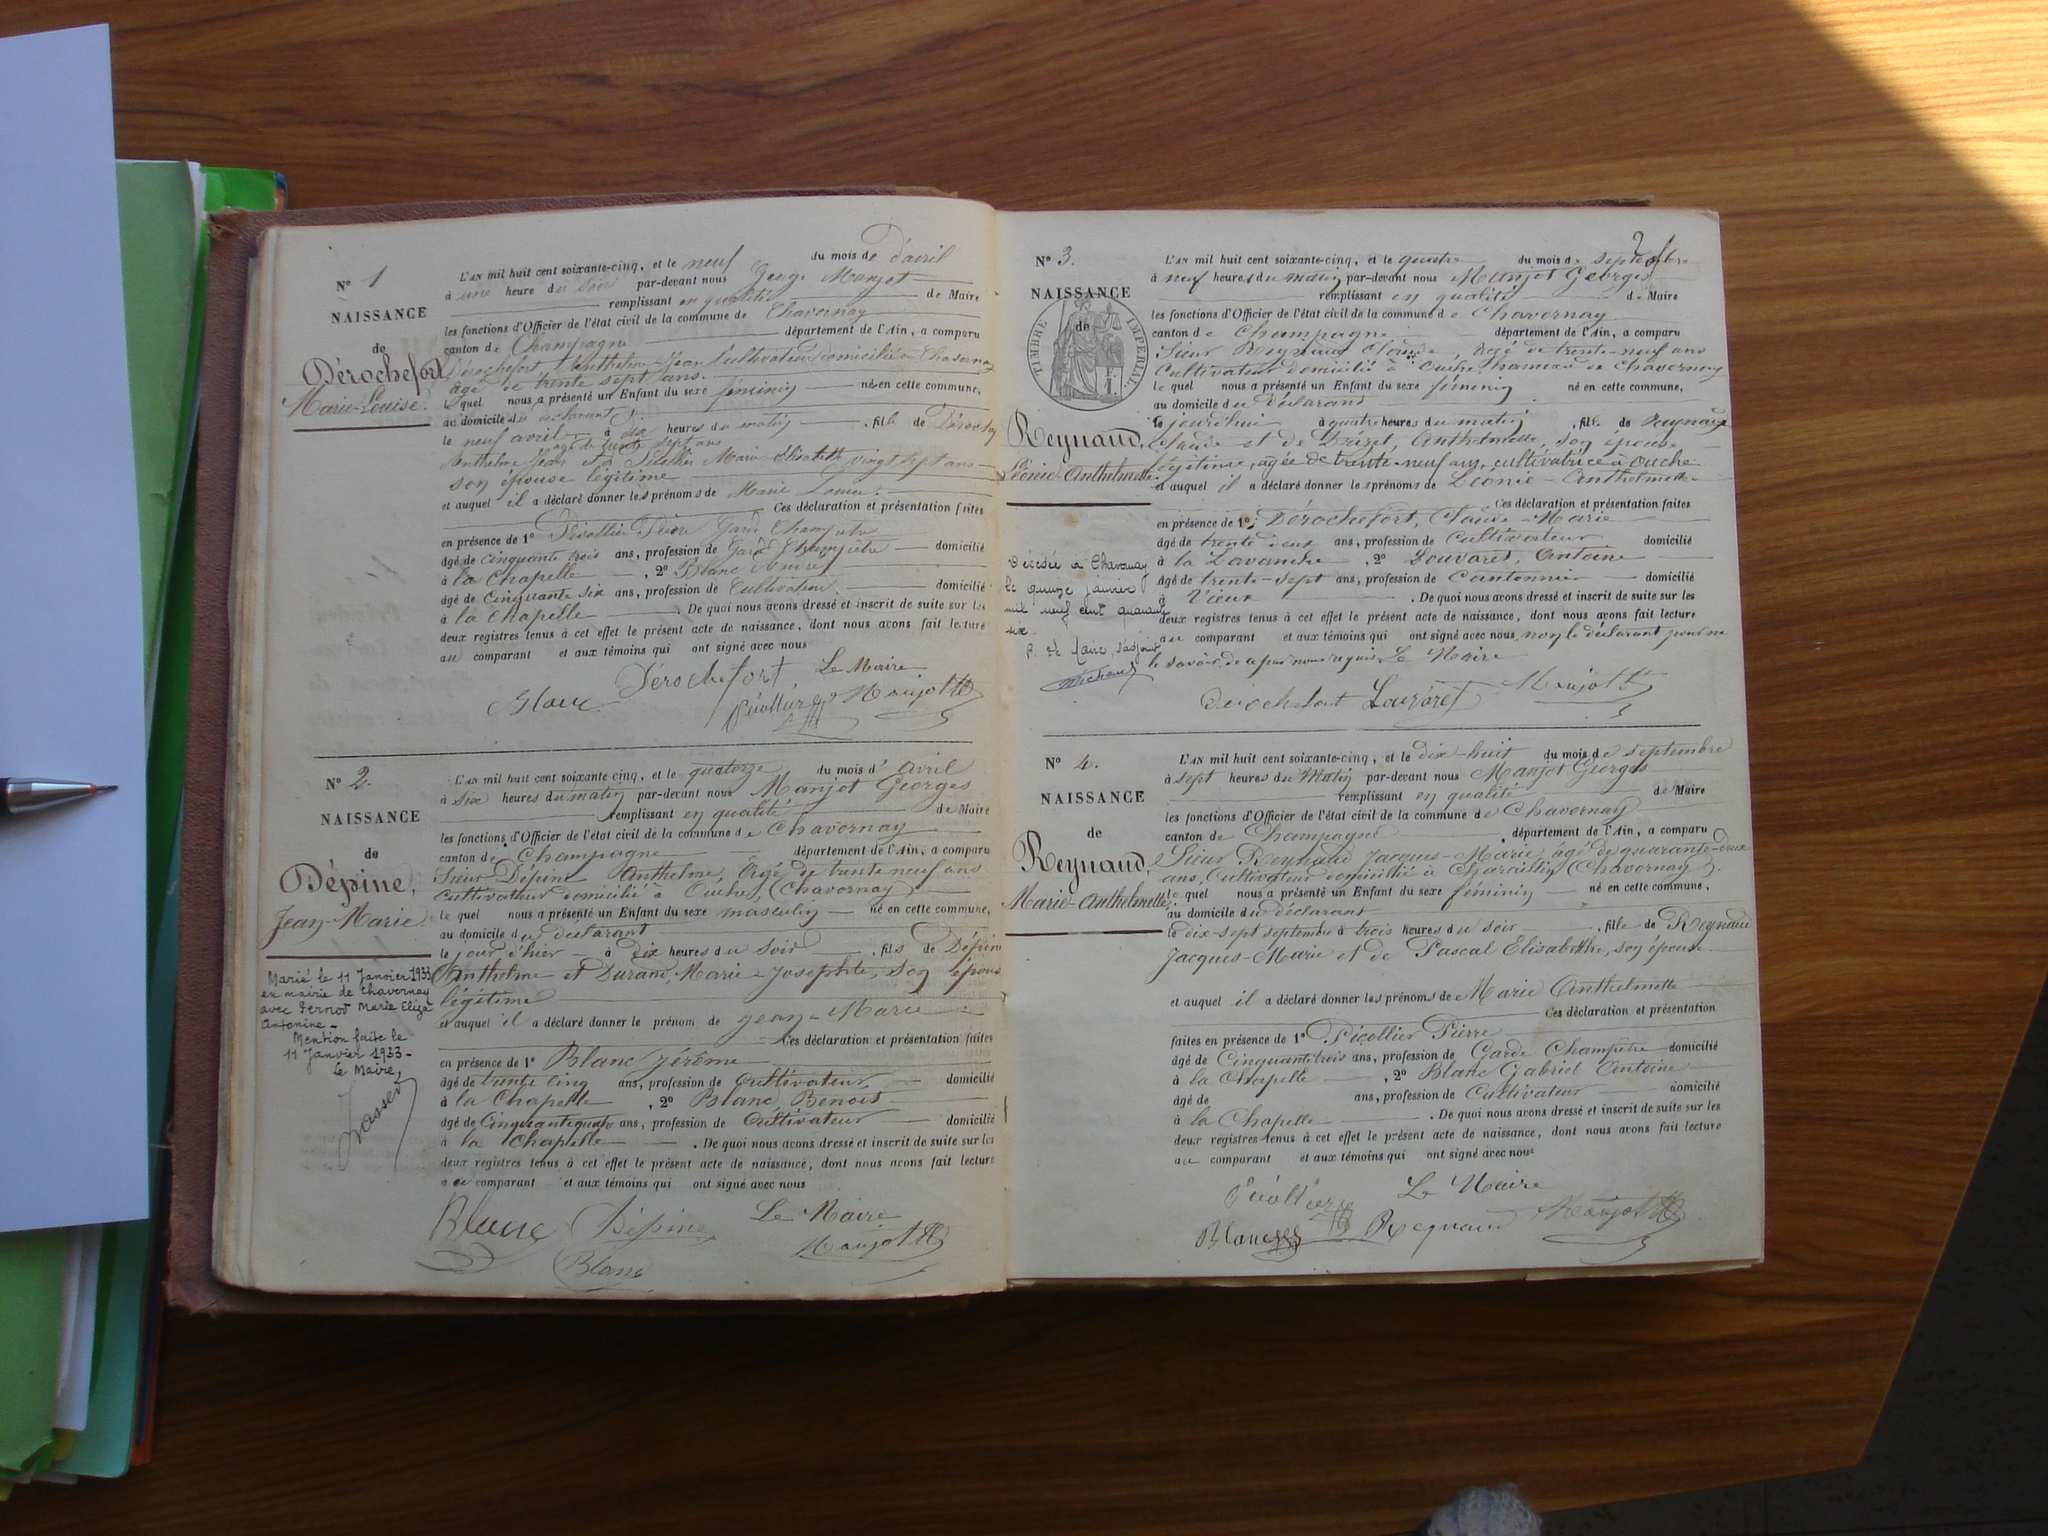 N° 1
NAISSANCE
de
Dérochefort
Marie-Louise.
L'AN mil huit cent soixante-cinq, et le neuf du mois de d'avril
à une heure du soir par-devant nous George Manjot
remplissant en qualité de Maire
les fonctions d'Officier de l'état civil de la commune de Chavornay
canton de Champagne département de l'Ain, a comparu
Dérochefort, Anthelme Jean Cultivateur domicilié à Chavornay
âgé de trente sept ans.
le quel nous a présenté un Enfant du sexe féminin né en cette commune,
au domicile du déclarant
le neuf avril à dix heures du matin, fille de Dérochefort
Anthelme Jean âgé de trente sept ans et Picollier Marie Elisabeth vingt sept ans
son épouse légitime
et auquel il a déclaré donner les prénoms de Marie Louise.
Ces déclaration et présentation faites
en présence de 1° Picollier Pierre Garde Champêtre
âgé de cinquante trois ans, profession de Garde Champêtre domicilié
à la Chapelle, 2° Blanc
âgé de Cinquante six ans, profession de Cultivateur. domicilié
à la Chapelle. De quoi nous avons dressé et inscrit de suite sur les
deux registres tenus à cet effet le présent acte de naissance, dont nous avons fait lecture
au comparant et aux témoins qui ont signé avec nous
Blanc Dérochefort, Le Maire
Picollier Manjot
N° 2.
NAISSANCE
de
Dépine,
Jean-Marie
Marié le 11 Janvier 1933
en mairie de Chavornay
avec Fernod Marie Eliza
Antonine -
Mention faite le
11 Janvier 1933-
Le Maire,
L'AN mil huit cent soixante-cinq, et le quatorze du mois d'avril
à six heures du matin par-devant nous Manjot Georges
remplissant en qualité de Maire
les fonctions d'Officier de l'état civil de la commune de Chavornay
canton de Champagne département de l'Ain, a comparu
Sieur Dépine Anthelme, âgé de trente neuf ans
Cultivateur domicilié à Ouche, (Chavornay)
le quel nous a présenté un Enfant du sexe masculin né en cette commune,
au domicile du déclarant
le jour d'hier à dix heures du soir, fils de Dépine
Anthelme et Durand, Marie-Josephte, son épouse
légitime
et auquel il a déclaré donner le prénom de Jean-Marie
Ces déclaration et présentation faites
en présence de 1° Blanc Jérôme
âgé de trente cinq ans, profession de Cultivateur domicilié
à la Chapelle, 2° Blanc Benoit
âgé de Cinquantequatre ans, profession de Cultivateur domicilié
à la Chapelle. De quoi nous avons dressé et inscrit de suite sur les
deux registres tenus à cet effet le présent acte de naissance, dont nous avons fait lecture
au comparant et aux témoins qui ont signé avec nous
Blanc Dépine Le Maire
Blanc Manjot
2
N° 3.
NAISSANCE
de
TIMBRE IMPERIAL
Reynaud,
Léonie-Anthelmette.
Décédée à Chavornay
le quinze janvier
mil neuf cent quarante
six.
P. le Maire, l'adjoint
L'AN mil huit cent soixante-cinq, et le quatre du mois de septembre
à neuf heures du matin par-devant nous Manjot Georges
remplissant en qualité de Maire
les fonctions d'Officier de l'état civil de la commune de Chavornay
canton de Champagne département de l'Ain, a comparu
Sieur Reynaud Claude, âgé de trente-neuf ans
Cultivateur domicilié à Ouche hameau de Chavornay
le quel nous a présenté un Enfant du sexe féminin né en cette commune,
au domicile du déclarant
le jourd'hui à quatre heures du matin, fille de Reynaud
Claude et de Anthelmette, son épouse
légitime, agée de trente-neuf ans, cultivatrice à Ouche
et auquel il a déclaré donner les prénoms de Léonie-Anthelmette
Ces déclaration et présentation faites
en présence de 1° Dérochefort, Claude-Marie
âgé de trente deux ans, profession de Cultivateur domicilié
à la Lavanche, 2° Louvaret, Antoine
âgé de trente-sept ans, profession de Cantonnier domicilié
à Vieux. De quoi nous avons dressé et inscrit de suite sur les
deux registres tenus à cet effet le présent acte de naissance, dont nous avons fait lecture
au comparant et aux témoins qui ont signé avec nous non le déclarant pour ne
le savoir, de ce par nous requis. Le Maire
Dérochefort Louvaret Manjot
N° 4.
NAISSANCE
de
Reynaud,
Marie-Anthelmette,
L'AN mil huit cent soixante-cinq, et le dix-huit du mois de septembre
à sept heures du matin par-devant nous Manjot Georges
remplissant en qualité de Maire
les fonctions d'Officier de l'état civil de la commune de Chavornay
canton de Champagne, département de l'Ain, a comparu
Sieur Reynaud Jacques-Marie, âgé de quarante-deux
ans, Cultivateur domicilié à (Chavornay).
le quel nous a présenté un Enfant du sexe féminin né en cette commune,
au domicile du déclarant
le dix-sept septembre à trois heures du soir, fille de Reynaud
Jacques-Marie et de Pascal Elisabethe, son épouse
et auquel il a déclaré donner les prénoms de Marie Anthelmette
Ces déclaration et présentation
faites en présence de 1° Picollier Pierre
âgé de Cinquantetrois ans, profession de Garde Champêtre domicilié
à la Chapelle, 2° Blanc Gabriel Antoine
âgé de ans, profession de Cultivateur domicilié
à la Chapelle. De quoi nous avons dressé et inscrit de suite sur les
deux registres tenus à cet effet le présent acte de naissance, dont nous avons fait lecture
au comparant et aux témoins qui ont signé avec nous
Picollier Le Maire
Blanc Reynaud Manjot